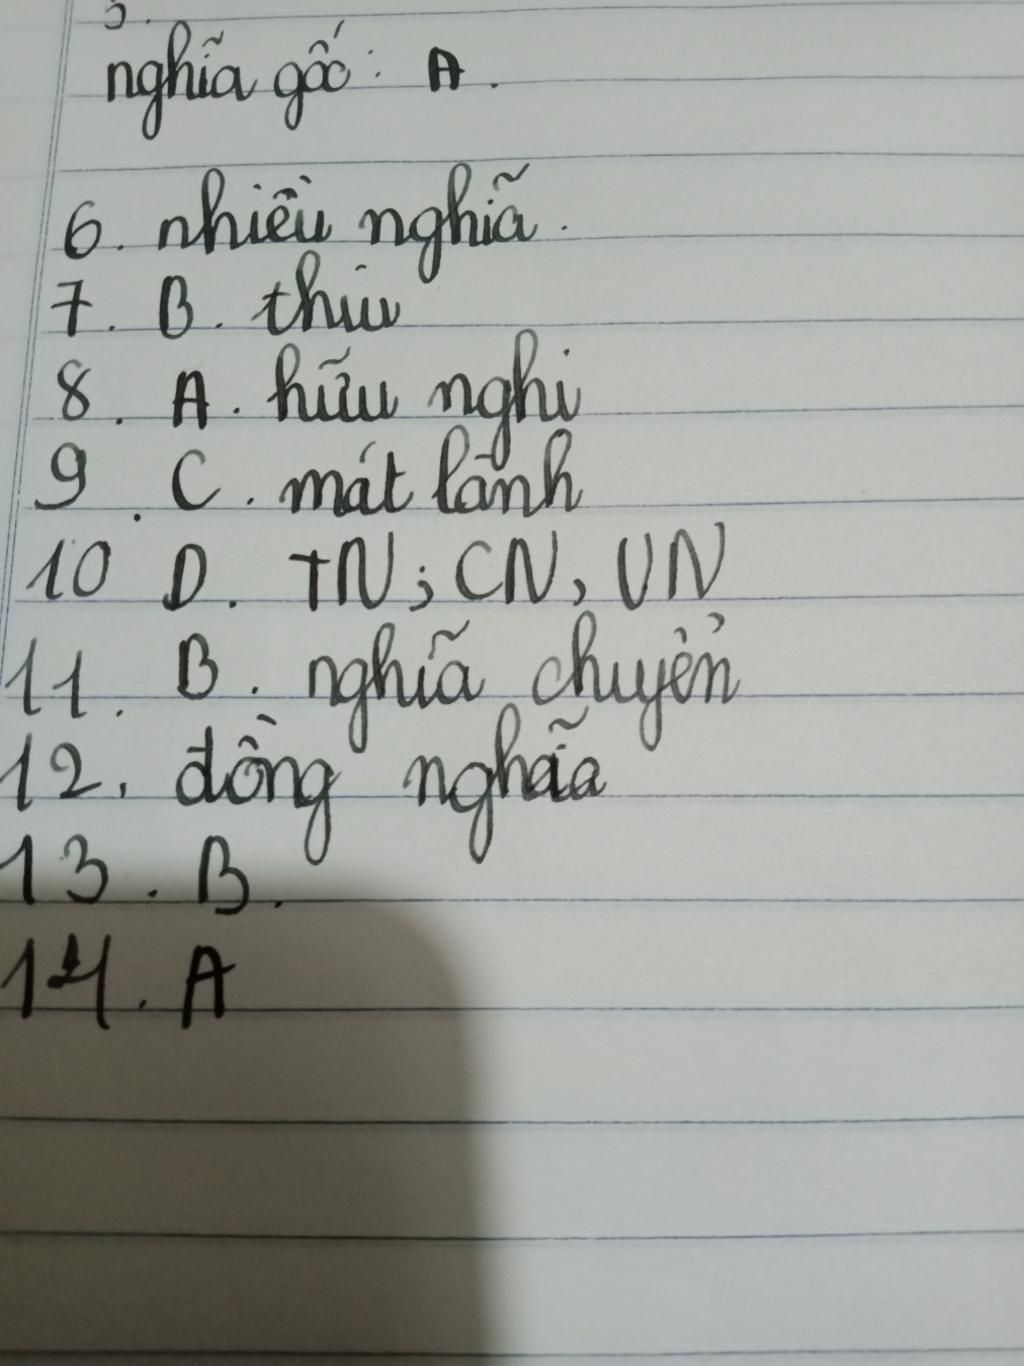 5.
nghĩa gốc: A.
6. nhiều nghĩa.
7. B. thiu
8. A. hữu nghi
9. C. mát lành
10 D. TN; CN, VN
11. B. nghĩa chuyển
12. đồng nghĩa
13. B.
14. A